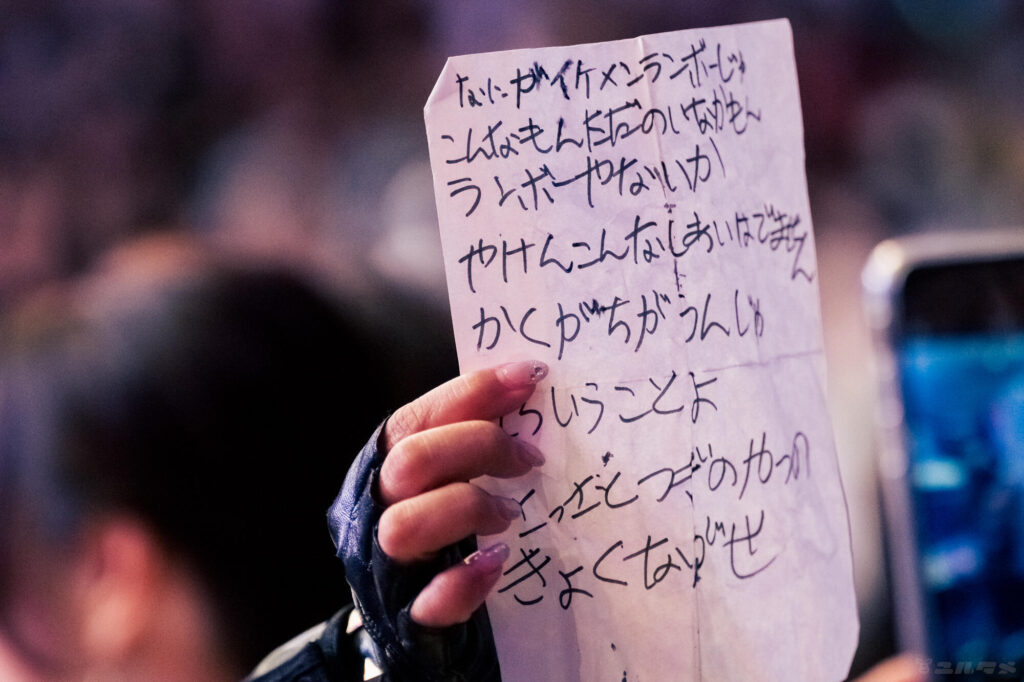 なにがイケメンランボーじゃ
こんなもんただのいなかもん
ランボーやないか
やけんこんなしあいはでません
かくがちがうんじゃ
いうことよ
とっととつぎのやつの
きょくながせ
ニルタメ